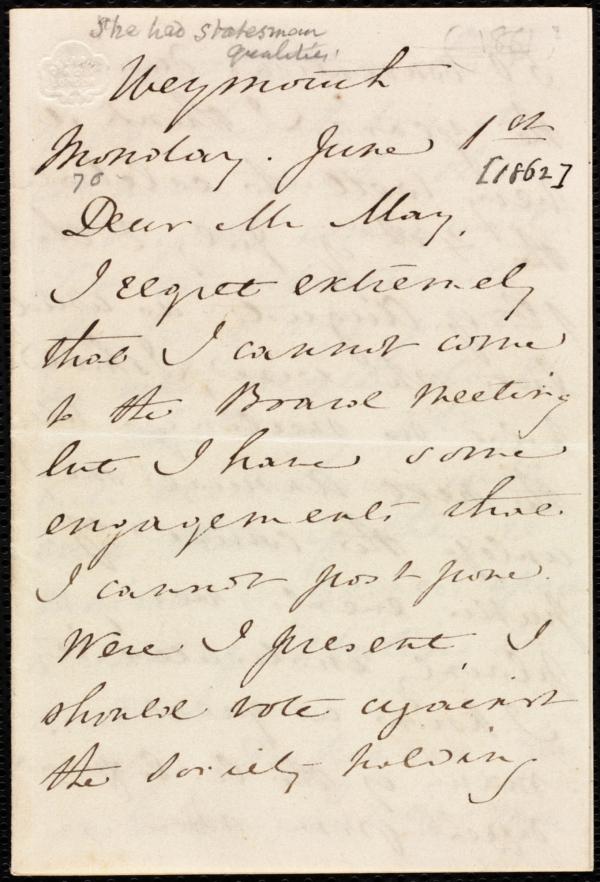 She had statesman
qualities.
(1861)?
Weymouth
Monday. June 1st
[1862]
70
Dear Mr May,
I regret extremely
that I cannot come
to the Board meeting
but I have some
engagements that
I cannot postpone.
Were I present I
should vote against
the Society holding